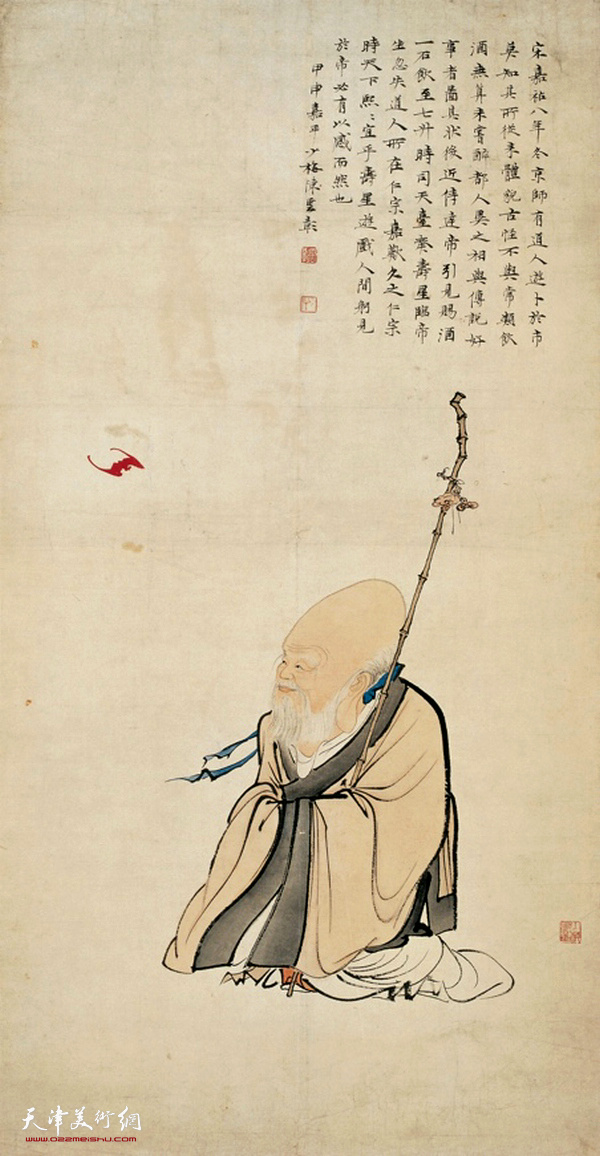 宋嘉祐八年冬京師有道人遊卜於市
莫知其所從來體貌古恠不與常類飲
酒無算未嘗醉都人異之相與傳說好
事者啚其狀後近侍達帝引見賜酒
一石飲至七升時司天臺奏壽星臨帝
坐忽失道人所在仁宗嘉歎久之仁宗
時天下熙〻宜乎壽星遊戲人間躬見
於帝必有以感而然也
甲申嘉平少梅陳雲彰
天津美術網
www.022meishu.com